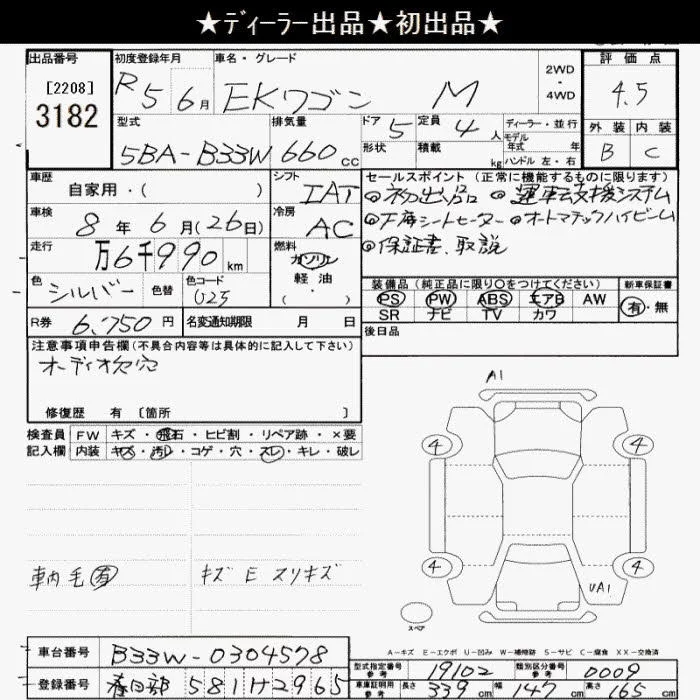 ★ディーラー出品★初出品★
出品番号 初度登録年月 車名・グレード 2WD・4WD 評価点
[2208] 3182 R5 6月 EKワゴン M 4.5
型式 排気量 ドア 5 定員 4人 ディーラー・並行 外装 内装
5BA-B33W 660cc 形状 積載 kg モデル年式 年 ハンドル 左・右 B C
車歴 シフト セールスポイント(正常に機能するものに限ります)
自家用・( ) IAT ◎初出品 ◎運転支援システム
車検 冷房 ◎前席シートヒーター ◎オートマチックハイビーム
8年6月(26日) AC ◎保証書、取説
走行 燃料
万6千990km ガソリン
軽油
・( )
色 色替 色コード 装備品(純正品に限り○をつけてください) 新車保証書
シルバー U25 PS PW ABS エアB AW 有・無
SR ナビ TV カワ
R券 6,750円 名変通知期限 月 日 後日品
注意事項申告欄(不具合内容等は具体的に記入して下さい)
オーディオ欠穴
修復歴 有〔箇所 〕
検査員 FW キズ・飛石・ヒビ割・リペア跡・×要
記入欄 内装 キズ・汚レ・コゲ・穴・スレ・キレ・破レ
A1
4 4
4 4
UA1
スペア
車内毛有 キズ E スリキズ
A-キズ E-エクボ U-凹み W-補修跡 S-サビ C-腐食 XX-交換済
車台番号 B33W-0304578 型式指定番号 参考 19102 類別区分番号 参考 0009
登録番号 春日部 581 H2965 車庫証明用 参考 長さ 339cm 幅 147cm 高さ 165cm